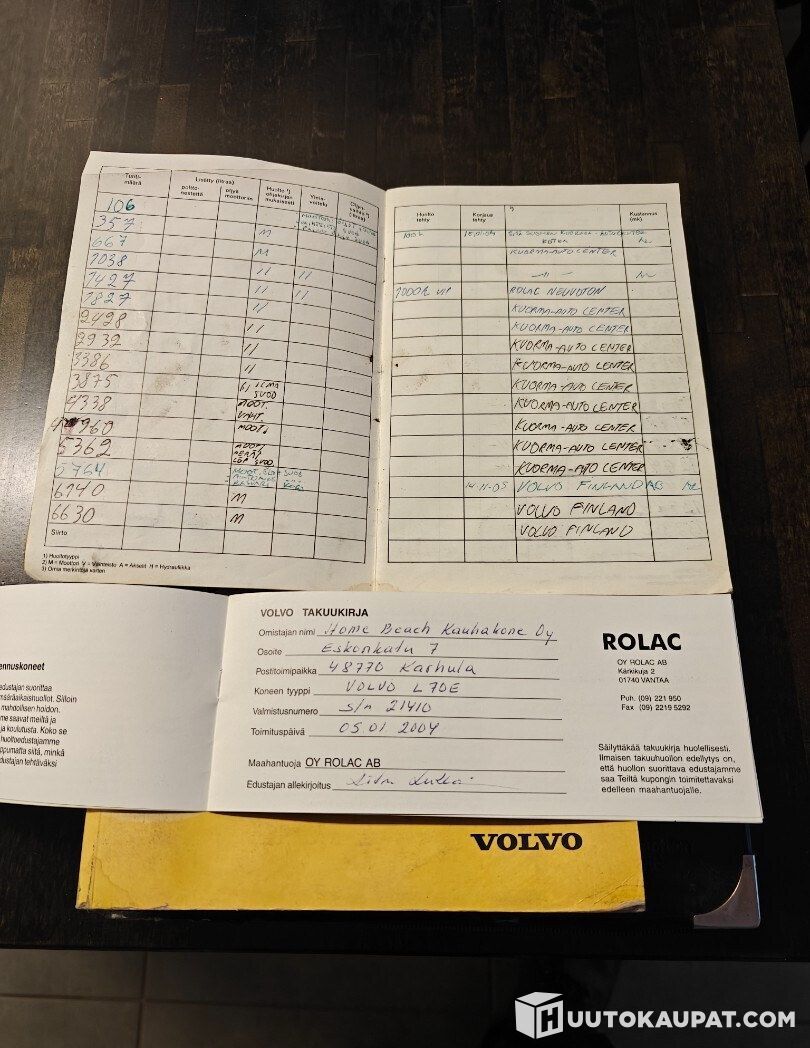 Tunti-
määrä
Lisätty (litraa)
poltto-
nestettä
öljyä
moottoriin
Huolto ¹)
ohjekirjan
mukaisesti
Voite-
106
357
667
M
1038
M
1427 " "
1827 " "
2428 "
2932 "
3386 "
3875
ILMA
SUOD
4338
MOOT.
VAIHT.
960
MOOT.
5362
5764
6140 M
6630 M
Siirto
1) Huoltotyyppi
2) M = Moottori V = Vaihteisto A = Akselit H = Hydrauliikka
3) Omia merkintöjä varten
Huolto
tehty
Korjaus
tehty
Kustannus
(mk)
KUORMA-AUTO CENTER
1000h
ROLAC
KUORMA-AUTO CENTER
KUORMA-AUTO CENTER
KUORMA-AUTO CENTER
KUORMA-AUTO CENTER
KUORMA-AUTO CENTER
KUORMA-AUTO CENTER
KUORMA-AUTO CENTER
KUORMA-AUTO CENTER
KUORMA-AUTO CENTER
14-11-05 VOLVO FINLAND AB
VOLVO FINLAND
VOLVO FINLAND
ennuskoneet
edustajan suorittaa
määräaikaishuollot. Silloin
mahdollisen hoidon.
me saavat meiltä ja
ja koulutusta. Koko se
huoltoedustajamme
ppumatta siitä, minkä
dustajan tehtäväksi
VOLVO TAKUUKIRJA
Omistajan nimi Home Beach Kauhakone Oy
Osoite Eskonkatu 7
Postitoimipaikka 48770 Karhula
Koneen tyyppi VOLVO L70E
Valmistusnumero s/n 21410
Toimituspäivä 05.01.2004
Maahantuoja OY ROLAC AB
Edustajan allekirjoitus
ROLAC
OY ROLAC AB
Kärkikuja 2
01740 VANTAA
Puh. (09) 221 950
Fax (09) 2219 5292
Säilyttäkää takuukirja huolellisesti.
Ilmaisen takuuhuollon edellytys on,
että huollon suorittava edustajamme
saa Teiltä kupongin toimitettavaksi
edelleen maahantuojalle.
VOLVO
HUUTOKAUPAT.COM